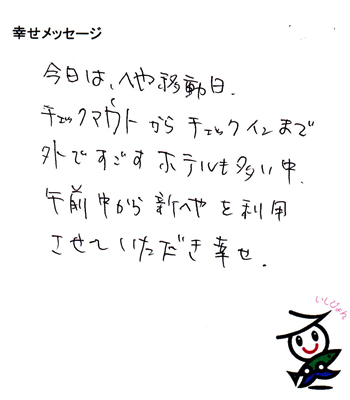 幸せメッセージ
今日は、へや移動日.
チェックマウトから チェックインまで
外ですごす ホテルも多い中.
午前中から 新へやを利用
させていただき幸せ.
いしじょん